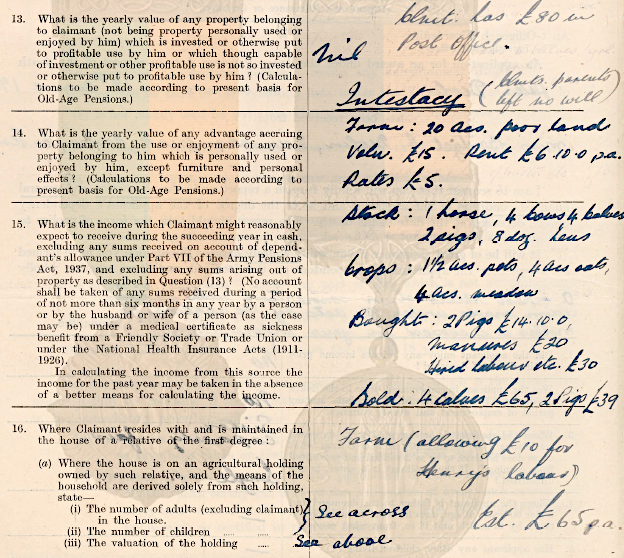 13. What is the yearly value of any property belonging
to claimant (not being property personally used or
enjoyed by him) which is invested or otherwise put
to profitable use by him or which though capable
of investment or other profitable use is not so invested
or otherwise put to profitable use by him? (Calcula-
tions to be made according to present basis for
Old-Age Pensions.)
Clmt. has £80 in
Post Office.
Nil
Intestacy (Clmts. parents
left no will)
14. What is the yearly value of any advantage accruing
to Claimant from the use or enjoyment of any pro-
perty belonging to him which is personally used or
enjoyed by him, except furniture and personal
effects? (Calculations to be made according to
present basis for Old-Age Pensions.)
Farm: 20 acs. poor land
Valn. £15. Rent £6.10.0 p.a.
Rates £5.
15. What is the income which Claimant might reasonably
expect to receive during the succeeding year in cash
excluding any sums received on account of depend-
ant's allowance under Part VII of the Army Pensions
Act, 1937, and excluding any sums arising out of
property as described in Question (13)? (No account
shall be taken of any sums received during a period
of not more than six months in any year by a person
or by the husband or wife of a person (as the case
may be) under a medical certificate as sickness
benefit from a Friendly Society or Trade Union or
under the National Health Insurance Acts (1911-
1926).
In calculating the income from this source the
income for the past year may be taken in the absence
of a better means for calculating the income.
Stock: 1 horse, 4 cows, 4 calves
2 pigs, 8 doz. hens
Crops: 1½ acs. pots, 4 acs oats,
4 acs. meadow
Bought: 2 Pigs £14.10.0,
manures £20
Hired labour etc. £30
Sold: 4 calves £65, 2 Pigs £39
16. Where Claimant resides with and is maintained in
the house of a relative of the first degree:
(a) Where the house is on an agricultural holding
owned by such relative, and the means of the
household are derived solely from such holding,
state—
(i) The number of adults (excluding claimant)
in the house.
(ii) The number of children
(iii) The valuation of the holding
Farm (allowing £10 for
Henry's labour)
See across
Est. £65 p.a.
See above